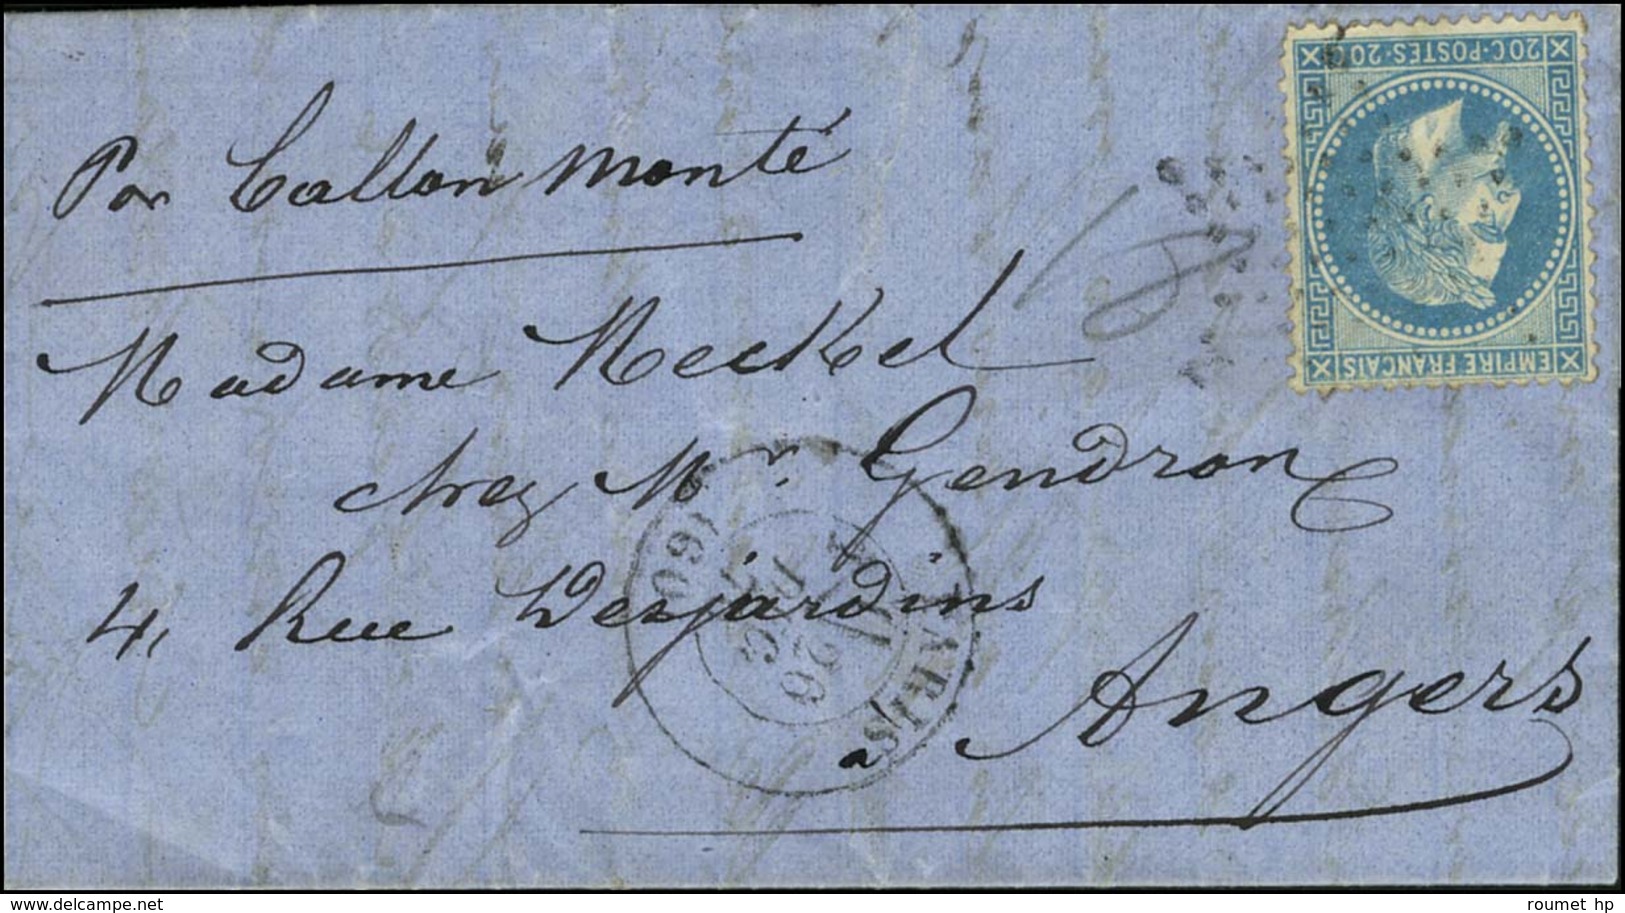 Par ballon monté
Madame Neckel
chez Mr. Gendron
4, Rue Desjardins
à Angers
20C·POSTES·20
EMPIRE FRANÇAIS
PARIS
26
(60)
www.delcampe.net
roumet hp